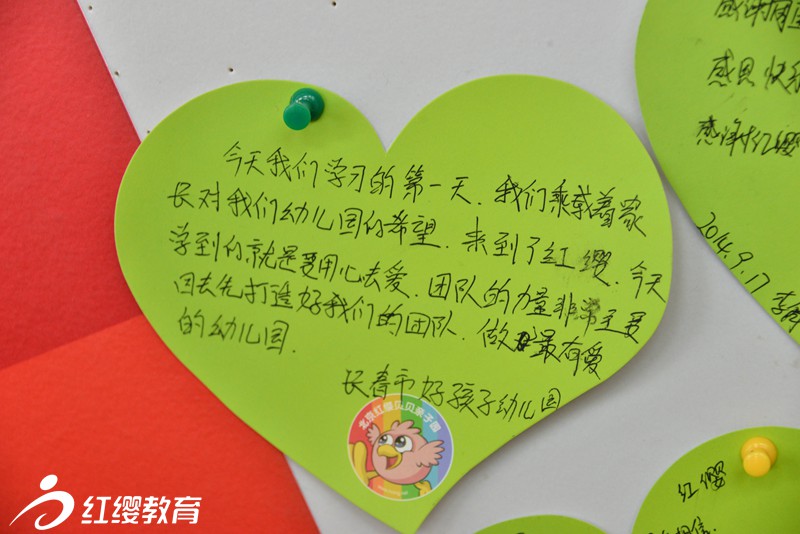 今天我们学习的第一天.我们乘载着家
长对我们幼儿园的希望.来到了红缨.今天
学到的就是要用心去爱.团队的力量非常重要
回去先打造好我们的团队.做最有爱
的幼儿园.
长春市好孩子幼儿园
北京红缨贝贝亲子园
感恩快乐
感谢红缨
2014.9.17
红缨
红缨教育